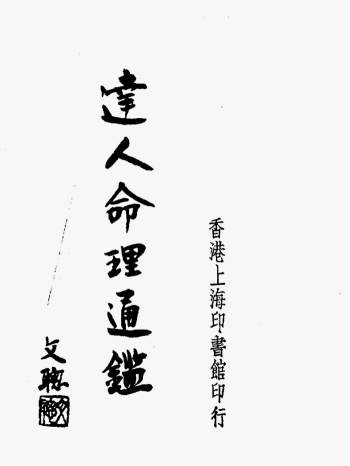 香港上海印書館印行
達人命理通鑑
文聰